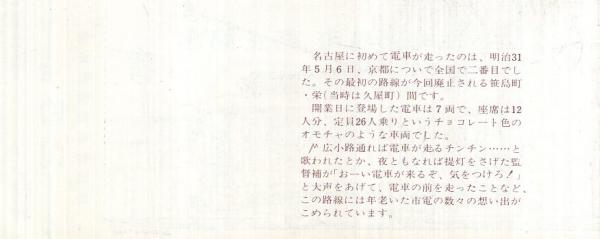 名古屋に初めて電車が走ったのは、明治31
年5月6日、京都についで全国で二番目でし
た。その最初の路線が今回廃止される笹島町
・栄(当時は久屋町)間です。
開業日に登場した電車は7両で、座席は12
人分、定員26人乗りというチョコレート色の
オモチャのような車両でした。
〽広小路通れば電車が走るチンチン……と
歌われたとか、夜ともなれば提灯をさげた監
督補が「おーい電車が来るぞ、気をつけろ!」
と大声をあげて、電車の前を走ったことなど、
この路線には年老いた市電の数々の想い出が
こめられています。